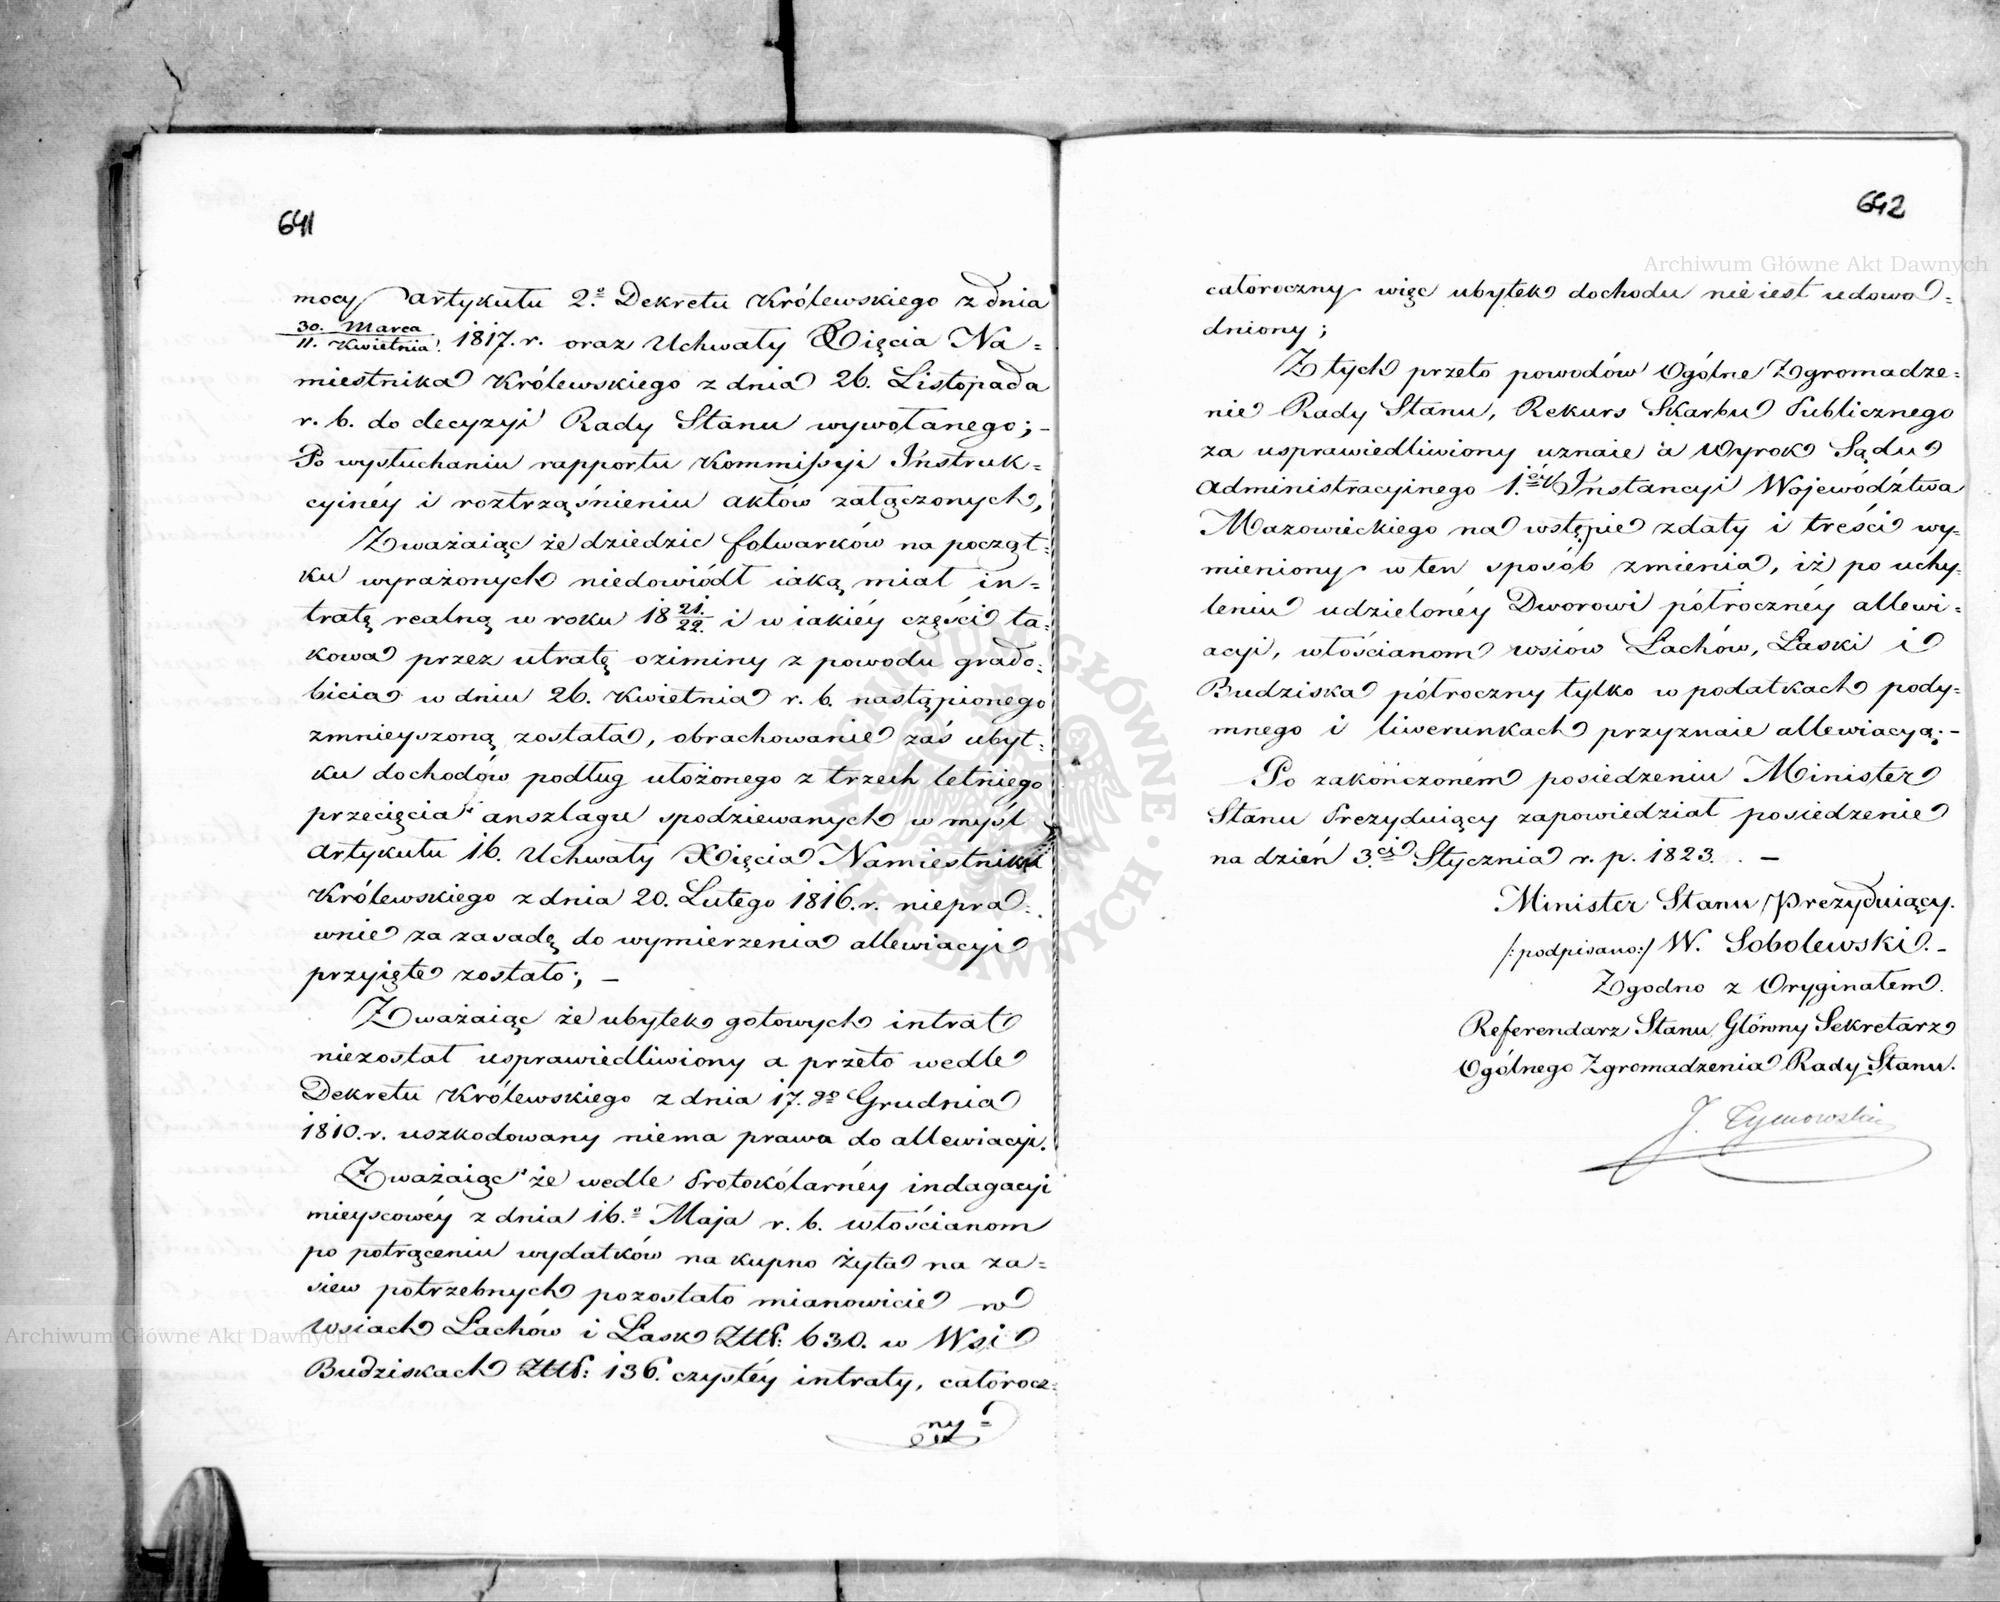 641
mocy artykułu 2.º Dekretu Królewskiego z dnia
30. Marca / 11. Kwietnia. 1817. r. oraz Uchwały Xięcia Na=
miestnika Królewskiego z dnia 26. Listopada
r. b. do decyzyi Rady Stanu wywołanego; -
Po wysłuchaniu rapportu Kommissyi Instruk=
cyinéy i roztrząśnieniu aktów załączonych,
Zważaiąc że dziedzic folwarków na począt=
ku wyrażonych niedowiódł iaką miał in=
tratę realną w roku 18 21./22. i w iakiéy części ta=
kowa przez utratę oziminy z powodu grado=
bicia w dniu 26. Kwietnia r. b. nastąpionego
zmnieyszoną została, obrachowanie zaś ubyt=
ku dochodów podług ułożonego z trzech letniego
przecięcia anszlagu spodziewanych w myśl
Artykułu 16. Uchwały Xięcia Namiestnika
Królewskiego z dnia 20. Lutego 1816. r. niepra=
wnie za zasadę do wymierzenia allewiacyi
przyięte zostało; -
Zważaiąc że ubytek gotowych intrat
niezostał usprawiedliwiony a przeto wedle
Dekretu Królewskiego z dnia 17. go Grudnia
1810. r. uszkodowany niema prawa do allewiacyi.
Zważaiąc że wedle Protokólarnéy indagacyi
mieyscowéy z dnia 16.º Maja r. b. włościanom
po potrąceniu wydatków na kupno żyta na za=
siew potrzebnych pozostało mianowicie w
Wsiach Lachów i Łask Złł: 630. w Wsi
Budziskach Złł: 136. czystéy intraty, całorocz=
ny=
642
całoroczny więc ubytek dochodu nie iest udowo=
dniony;
Z tych przeto powodów Ogólne Zgromadze=
nie Rady Stanu, Rekurs Skarbu Publicznego
za usprawiedliwiony uznaie a Wyrok Sądu
Administracyinego 1.éy Instancyi Województwa
Mazowieckiego na wstępie z daty i treści wy=
mieniony w ten sposób zmienia, iż po uchy=
leniu udzielonéy Dworowi półrocznéy allewi=
acyi, włościanom wsiów Lachów, Łaski i
Budziska półroczny tylko w podatkach pody=
mnego i liwerunkach przyznaie allewiacyą. -
Po zakończoném posiedzeniu Minister
Stanu Prezyduiący zapowiedział posiedzenie
na dzień 3.ci Stycznia r. p. 1823. . -
Minister Stanu Prezyduiący.
/: podpisano:/ W. Sobolewski. -
Zgodno z Oryginałem.
Referendarz Stanu, Główny Sekretarz
Ogólnego Zgromadzenia Rady Stanu.
J. Tymowski
Archiwum Główne Akt Dawnych
Archiwum Główne Akt Dawnych
ARCHIWUM GŁÓWNE AKT DAWNYCH